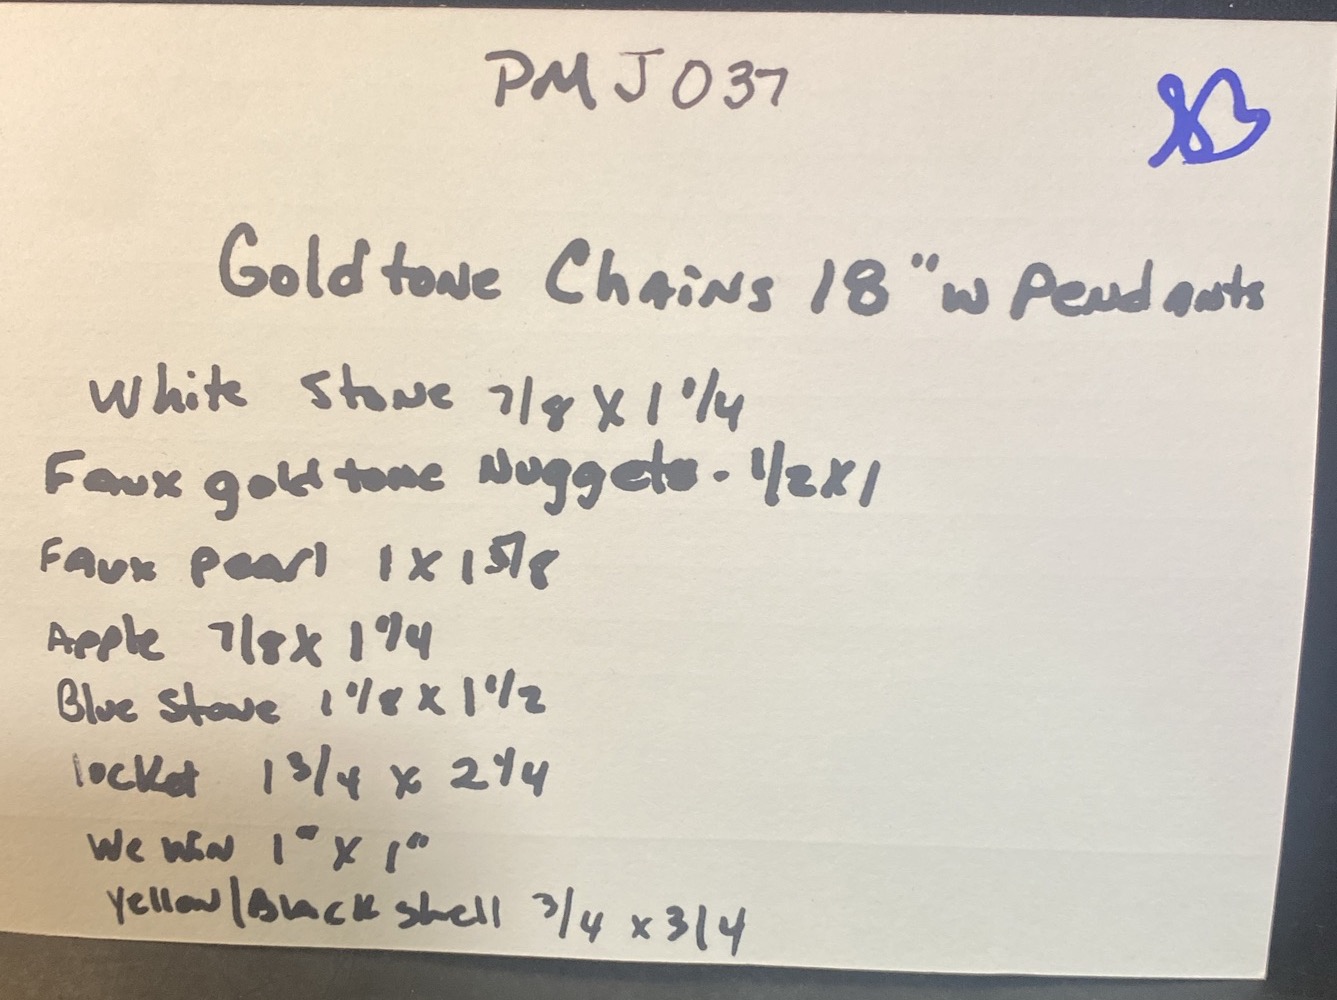 PMJ037
Goldtone Chains 18" w Pendants
White Stone 7/8 X 1 1/4
Faux goldtone Nuggets - 1/2 X 1
Faux pearl 1 X 1 5/8
Apple 7/8 X 1 1/4
Blue Stone 1 1/8 X 1 1/2
locket 1 3/4 X 2 1/4
We Win 1" X 1"
Yellow/Black shell 3/4 x 3/4